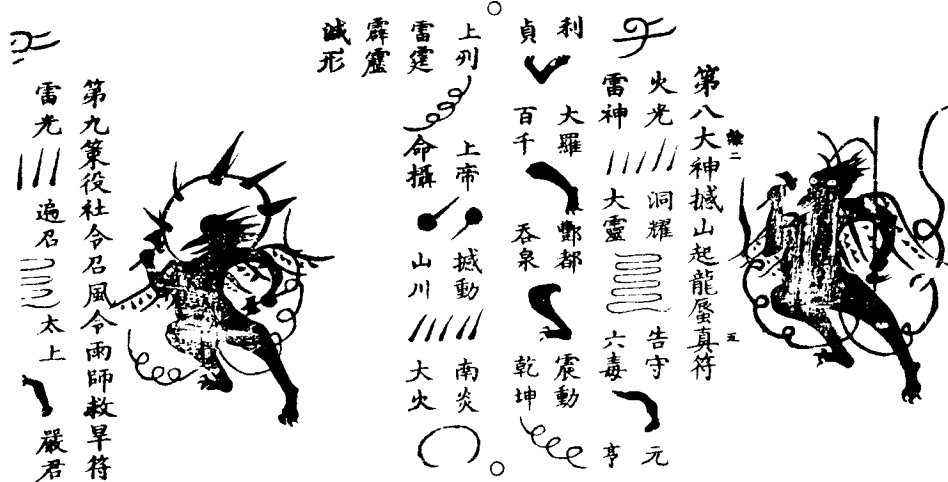 第八大神撼山起龍蜃真符
五
火光 洞耀 告守 元
雷神 大靈 六毒 亨
利 大羅 酆都 震動
貞 百千 吞泉 乾坤
上列 上帝 撼動 南炎
雷霆 命攝 山川 大火
霹靂
滅形
第九策役社令召風令雨師救旱符
雷光 遍召 太上 嚴君